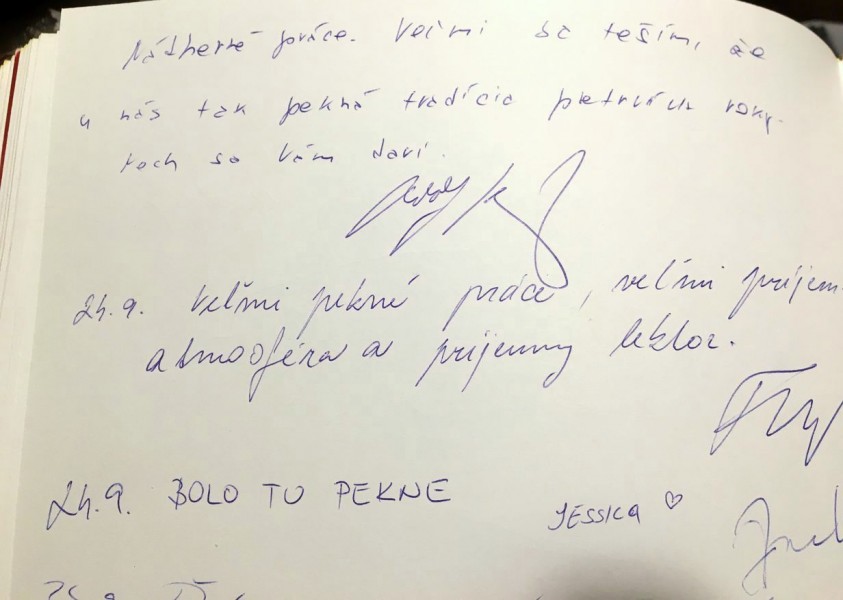 Nádherné práce. Veľmi sa teším, že
u nás tak pekná tradícia pretrváva roky.
Nech sa Vám darí.
24.9. Veľmi pekné práce, veľmi príjem
atmosféra a príjemny lektor.
24.9. BOLO TU PEKNE
JESSICA ♡